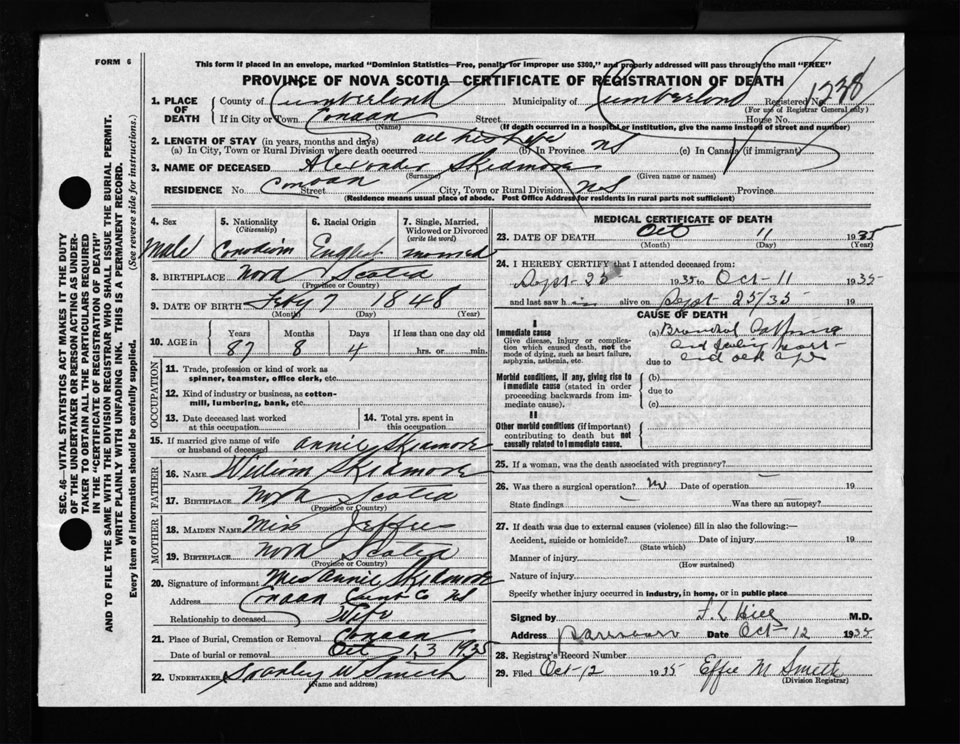 FORM 6
This form if placed in an envelope, marked "Dominion Statistics—Free, penalty for improper use $300," and properly addressed will pass through the mail "FREE"
PROVINCE OF NOVA SCOTIA—CERTIFICATE OF REGISTRATION OF DEATH
1. PLACE OF DEATH County of Cumberland Municipality of Cumberland Registered No. 1238
(For use of Registrar General only)
If in City or Town Canaan Street House No.
(Name) (If death occurred in a hospital or institution, give the name instead of street and number)
2. LENGTH OF STAY (in years, months and days) all his life
(a) In City, Town or Rural Division where death occurred (b) In Province NS (c) In Canada (if immigrant)
3. NAME OF DECEASED Alexander Skidmore
(Surname) (Given name or names)
RESIDENCE No. Canaan Street City, Town or Rural Division NS Province
(Residence means usual place of abode. Post Office Address for residents in rural parts not sufficient)
4. Sex 5. Nationality (Citizenship) 6. Racial Origin 7. Single, Married, Widowed or Divorced (write the word)
Male Canadian English married
8. BIRTHPLACE Nova Scotia
(Province or Country)
9. DATE OF BIRTH Feby 7 1848
(Month) (Day) (Year)
10. AGE in Years Months Days If less than one day old
87 8 4 hrs. or min.
OCCUPATION
11. Trade, profession or kind of work as spinner, teamster, office clerk, etc.
12. Kind of industry or business, as cotton-mill, lumbering, bank, etc.
13. Date deceased last worked at this occupation 14. Total yrs. spent in this occupation
15. If married give name of wife or husband of deceased Annie Skidmore
FATHER
16. NAME William Skidmore
17. BIRTHPLACE Nova Scotia
(Province or Country)
MOTHER
18. MAIDEN NAME Miss Jeffers
19. BIRTHPLACE Nova Scotia
(Province or Country)
20. Signature of informant Mrs Annie Skidmore
Address Canaan Cumb Co NS
Relationship to deceased Wife
21. Place of Burial, Cremation or Removal Canaan
Date of burial or removal Oct 13 1935
22. UNDERTAKER Stanley W Smith
(Name and address)
MEDICAL CERTIFICATE OF DEATH
23. DATE OF DEATH Oct 11 1935
(Month) (Day) (Year)
24. I HEREBY CERTIFY that I attended deceased from:
Sept 25 1935 to Oct-11 1935
and last saw him alive on Sept 25/35 19
CAUSE OF DEATH
I
Immediate cause
Give disease, injury or complication which caused death, not the mode of dying, such as heart failure, asphyxia, asthenia, etc.
(a) Bronchial Asthma
and failing heart
due to and old age
Morbid conditions, if any, giving rise to immediate cause (stated in order proceeding backwards from immediate cause).
(b)
due to
(c)
II
Other morbid conditions (if important) contributing to death but not causally related to immediate cause.
25. If a woman, was the death associated with pregnancy?
26. Was there a surgical operation? no Date of operation 19
State findings Was there an autopsy?
27. If death was due to external causes (violence) fill in also the following:—
Accident, suicide or homicide? Date of injury 19
(State which)
Manner of injury
(How sustained)
Nature of injury
Specify whether injury occurred in industry, in home, or in public place
Signed by Hill M.D.
Address Parrsboro Date Oct-12 1935
28. Registrar's Record Number
29. Filed Oct-12 1935 Effie M Smith
(Division Registrar)
SEC. 46—VITAL STATISTICS ACT MAKES IT THE DUTY
OF THE UNDERTAKER OR PERSON ACTING AS UNDER-
TAKER TO OBTAIN ALL THE PARTICULARS REQUIRED
IN THE "CERTIFICATE OF REGISTRATION OF DEATH"
AND TO FILE THE SAME WITH THE DIVISION REGISTRAR WHO SHALL ISSUE THE BURIAL PERMIT.
WRITE PLAINLY WITH UNFADING INK. THIS IS A PERMANENT RECORD.
Every item of information should be carefully supplied. (See reverse side for instructions.)